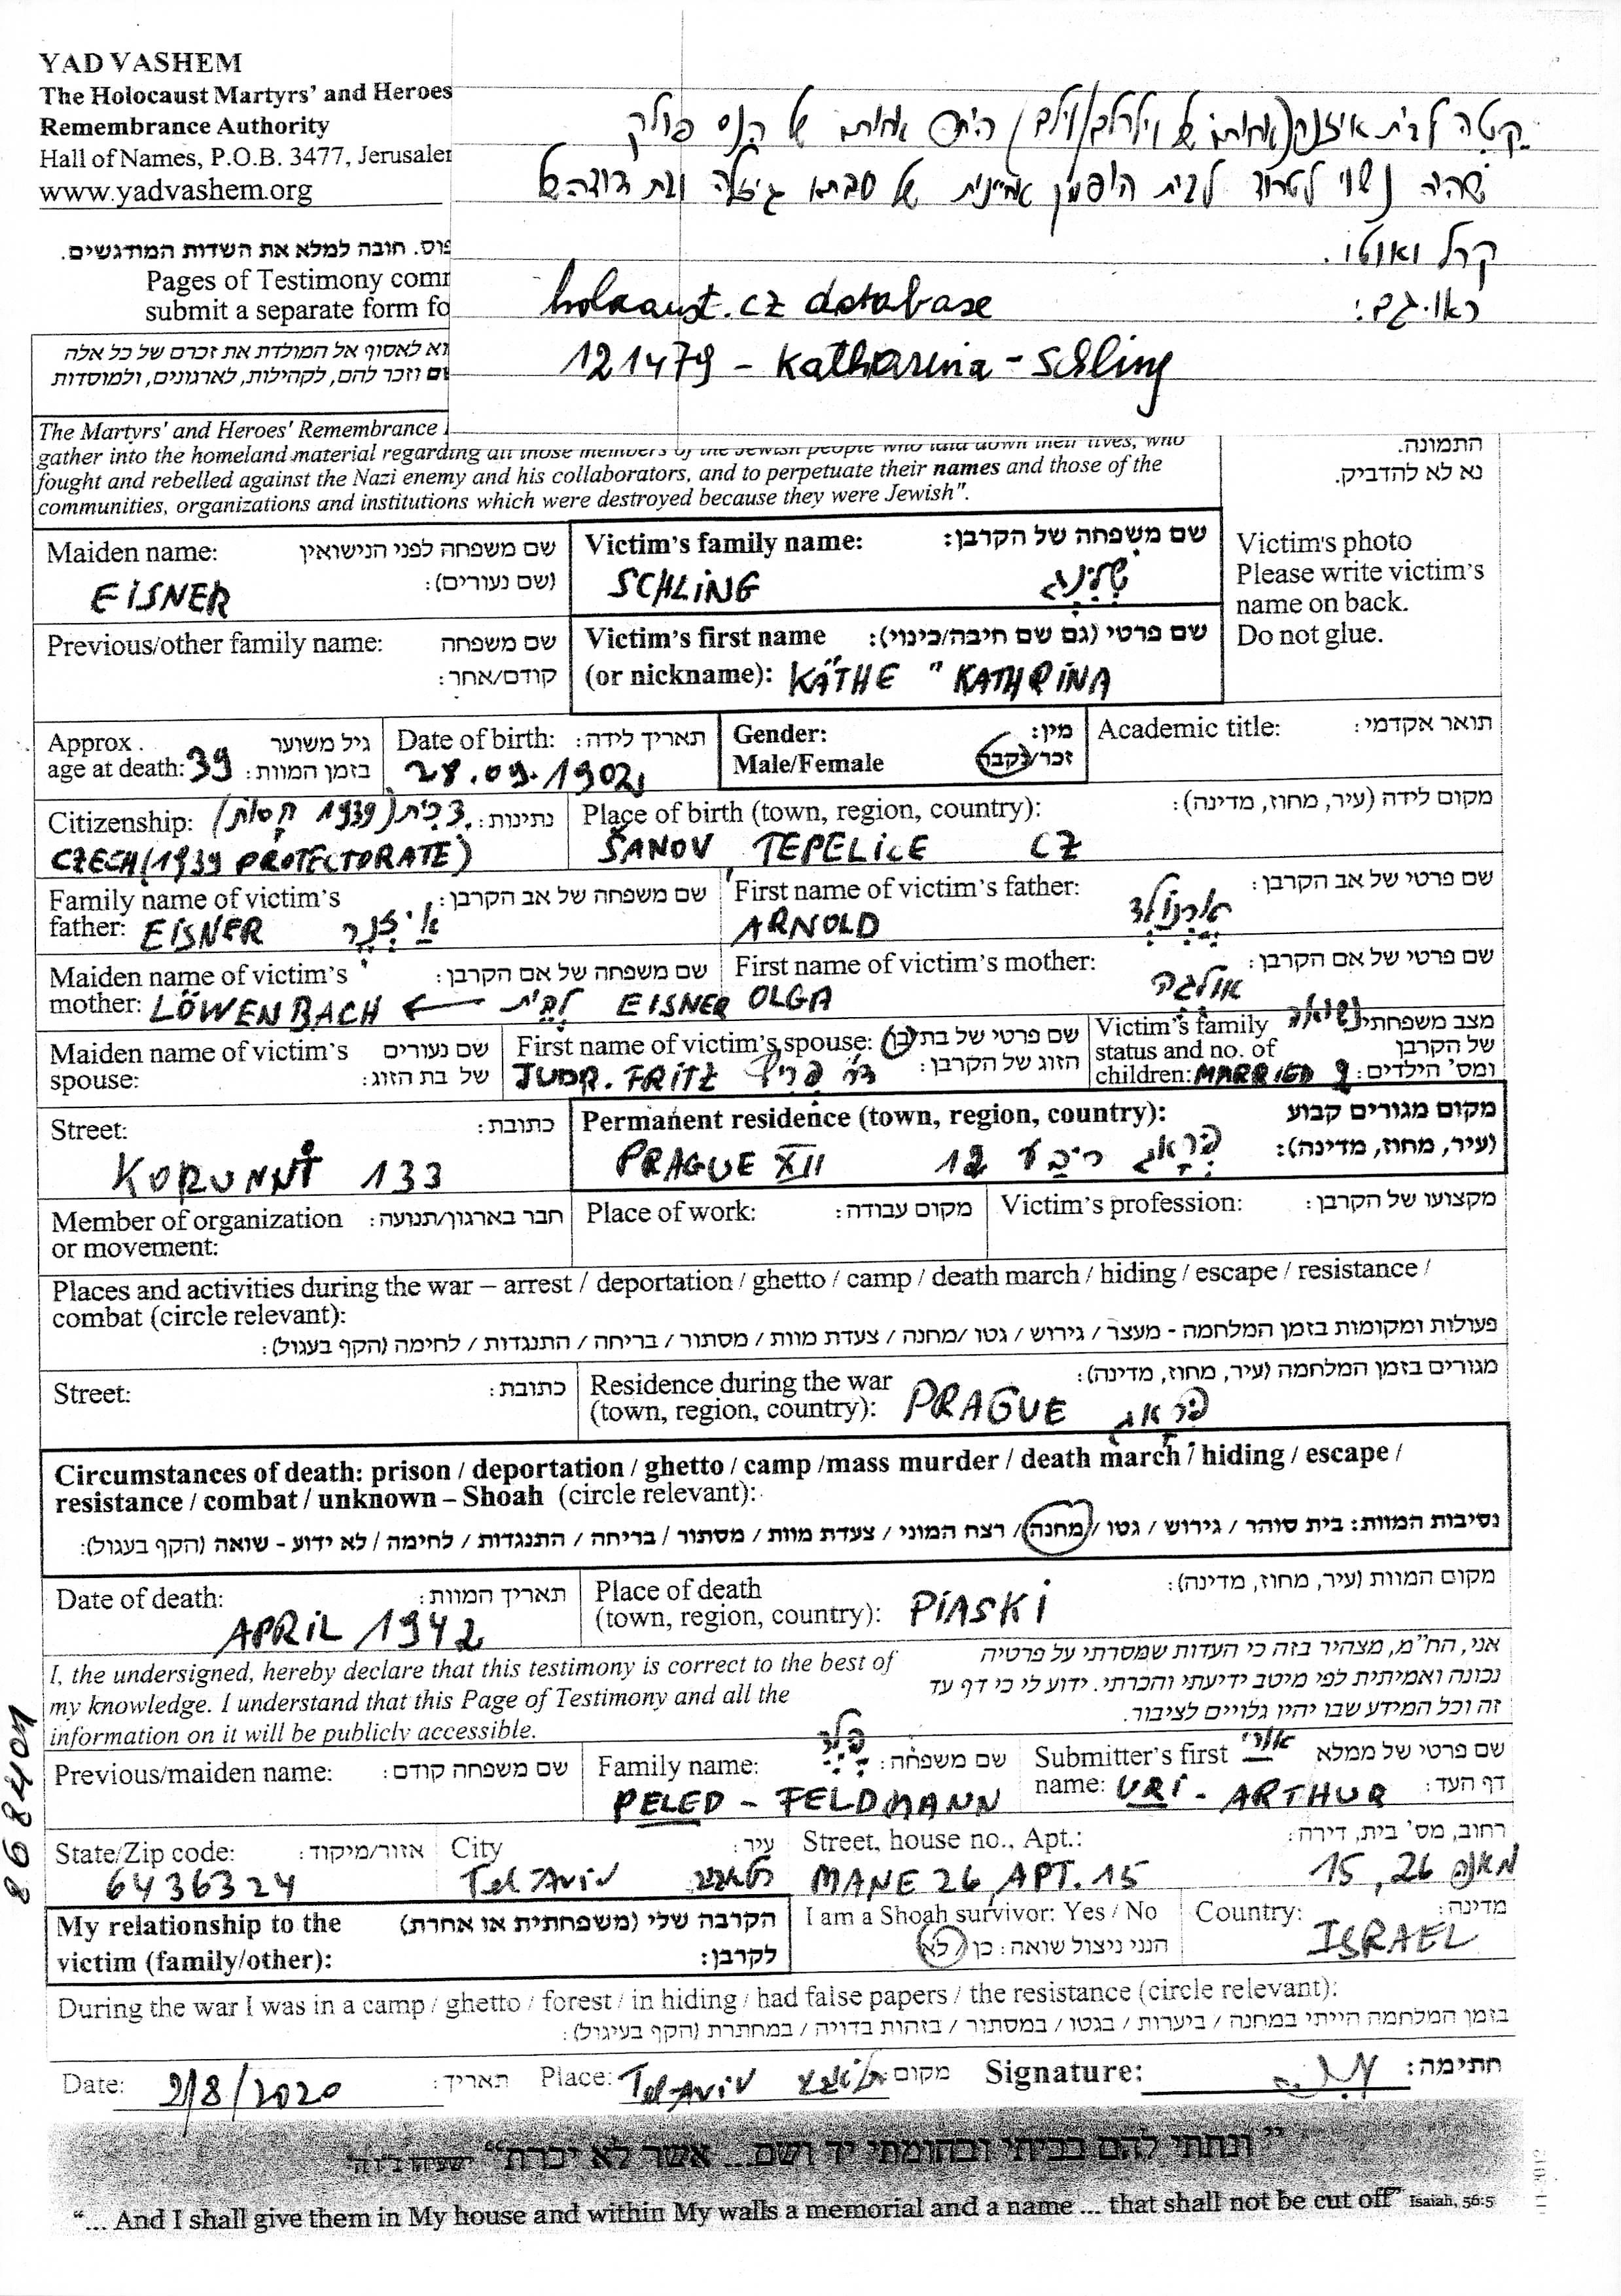 YAD VASHEM
The Holocaust Martyrs' and Heroes
Remembrance Authority
Hall of Names, P.O.B. 3477, Jerusaler
www.yadvashem.org
שהיה נשוי לטרוד לבית הופמן אחיינית של סבתא גיזלה ובת דודה של
קרל ואוטו.
ראו גם:
holocaust.cz database
121479 - Katharina - Schling
פוס. חובה למלא את השדות המודגשים.
Pages of Testimony comm
submit a separate form fo
וא לאסוף אל המולדת את זכרם של כל אלה
שם וזכר להם, לקהילות, לארגונים, ולמוסדות
The Martyrs' and Heroes' Remembrance
gather into the homeland material regarding all those members of the Jewish people who laid down their lives, who
fought and rebelled against the Nazi enemy and his collaborators, and to perpetuate their names and those of the
communities, organizations and institutions which were destroyed because they were Jewish".
התמונה.
נא לא להדביק.
Victim's photo
Please write victim's
name on back.
Do not glue.
Maiden name: שם משפחה לפני הנישואין
(שם נעורים):
EISNER
Victim's family name: שם משפחה של הקרבן:
SCHLING שלינג
Previous/other family name: שם משפחה
קודם/אחר:
Victim's first name שם פרטי (גם שם חיבה/כינוי):
(or nickname): KÄTHE " KATHRINA
Approx. גיל משוער
age at death: 39 בזמן המוות:
Date of birth: תאריך לידה:
28.09.1902
Gender: מין:
Male/Female זכר/נקבה
Academic title: תואר אקדמי:
Citizenship: נתינות:
CZECH (1939 PROTECTORATE)
Place of birth (town, region, country): מקום לידה (עיר, מחוז, מדינה):
ŠANOV TEPELICE CZ
Family name of victim's שם משפחה של אב הקרבן:
father: EISNER אייזנר
First name of victim's father: שם פרטי של אב הקרבן:
ARNOLD ארנולד
Maiden name of victim's שם משפחה של אם הקרבן:
mother: LÖWENBACH ← לבית EISNER
First name of victim's mother: שם פרטי של אם הקרבן:
OLGA אולגה
Maiden name of victim's שם נעורים
spouse: של בת הזוג:
First name of victim's spouse: שם פרטי של בת/בן
הזוג של הקרבן:
JUDR. FRITZ ד"ר פריץ
Victim's family מצב משפחתי נשואה
status and no. of של הקרבן
children: MARRIED 2 ומס' הילדים:
Street: כתובת:
KORUNNÍ 133
Permanent residence (town, region, country): מקום מגורים קבוע
(עיר, מחוז, מדינה):
PRAGUE XII פראג רובע 12
Member of organization חבר בארגון/תנועה:
or movement:
Place of work: מקום עבודה:
Victim's profession: מקצועו של הקרבן:
Places and activities during the war – arrest / deportation / ghetto / camp / death march / hiding / escape / resistance /
combat (circle relevant):
פעולות ומקומות בזמן המלחמה - מעצר / גירוש / גטו /מחנה / צעדת מוות / מסתור / בריחה / התנגדות / לחימה (הקף בעגול):
Street: כתובת:
Residence during the war מגורים בזמן המלחמה (עיר, מחוז, מדינה):
(town, region, country): PRAGUE פראג
Circumstances of death: prison / deportation / ghetto / camp /mass murder / death march / hiding / escape /
resistance / combat / unknown – Shoah (circle relevant):
נסיבות המוות: בית סוהר / גירוש / גטו / מחנה / רצח המוני / צעדת מוות / מסתור / בריחה / התנגדות / לחימה / לא ידוע - שואה (הקף בעגול):
Date of death: תאריך המוות:
APRIL 1942
Place of death מקום המוות (עיר, מחוז, מדינה):
(town, region, country): PIASKI
I, the undersigned, hereby declare that this testimony is correct to the best of
my knowledge. I understand that this Page of Testimony and all the
information on it will be publicly accessible.
אני, הח"מ, מצהיר בזה כי העדות שמסרתי על פרטיה
נכונה ואמיתית לפי מיטב ידיעתי והכרתי. ידוע לי כי דף עד
זה וכל המידע שבו יהיו גלויים לציבור.
868401
Previous/maiden name: שם משפחה קודם:
Family name: שם משפחה: פלד
PELED - FELDMANN
Submitter's first אורי שם פרטי של ממלא
name: URI - ARTHUR דף העד:
State/Zip code: אזור/מיקוד:
6436324
City עיר:
Tel Aviv תל אביב
Street, house no., Apt.: רחוב, מס' בית, דירה:
MANE 26, APT. 15 מאנה 26, 15
My relationship to the הקרבה שלי (משפחתית או אחרת)
victim (family/other): לקרבן:
I am a Shoah survivor: Yes / No
הנני ניצול שואה: כן / לא
Country: מדינה:
ISRAEL
During the war I was in a camp / ghetto / forest / in hiding / had false papers / the resistance (circle relevant):
בזמן המלחמה הייתי במחנה / ביערות / בגטו / במסתור / בזהות בדויה / במחתרת (הקף בעיגול):
Date: 2/8/2020 תאריך: Place: Tel-Aviv תל אביב מקום Signature: חתימה:
"ונתתי להם בביתי ובחומתי יד ושם... אשר לא יכרת" ישעיהו נ"ו ה'
"... And I shall give them in My house and within My walls a memorial and a name ... that shall not be cut off" Isaiah, 56:5